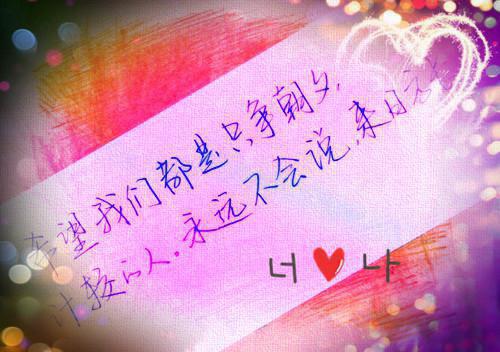 希望我们都是只争朝夕,
计较的人。永远不会说,来日方
너 ❤ 나